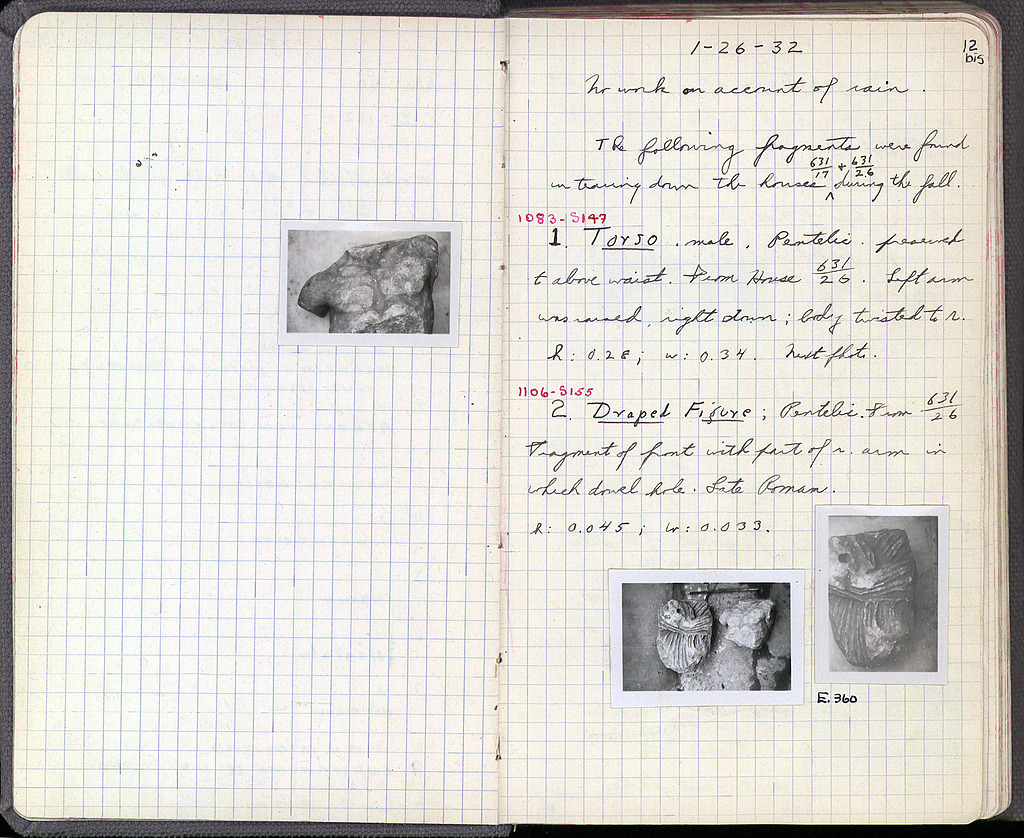 1-26-32
12
bis
No work on account of rain.
The following fragments were found
631/17 + 631/26
in tearing down the houses ^ during the fall.
1083-S147
1. Torso. male. Pentelic. preserved
t above waist. From House 631/26. Left arm
was raised, right down; body twisted to r.
h: 0.28; w: 0.34. Next photo.
1106-S155
2. Draped Figure; Pentelic. From 631/26
Fragment of front with part of r. arm in
which dowel hole. Late Roman.
h: 0.045; w: 0.033.
E.360